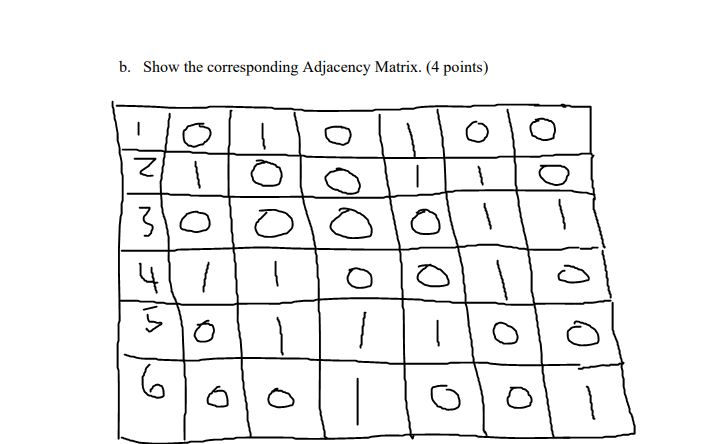 b. Show the corresponding Adjacency Matrix. (4 points)
1 0 1 0 1 0 0
2 1 0 0 1 1 0
3 0 0 0 0 1 1
4 1 1 0 0 1 0
5 0 1 1 1 0 0
6 0 0 1 0 0 1